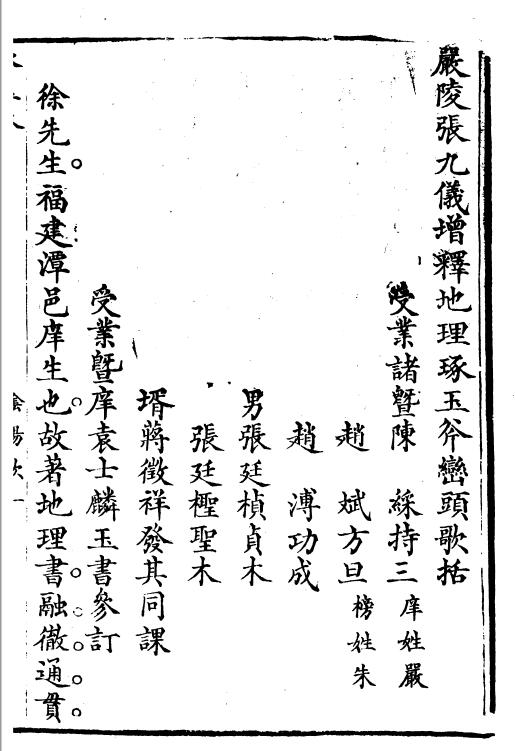 嚴陵張九儀增釋地理琢玉斧巒頭歌括
受業諸暨陳　綵持三庠姓嚴
趙　斌方旦榜姓朱
趙　溥功成
男張廷楨貞木
張廷檉聖木
壻蔣徵祥發其同課
受業暨庠袁士麟玉書參訂
徐先生。福建潭邑庠生也。故著地理書。融徹通貫。